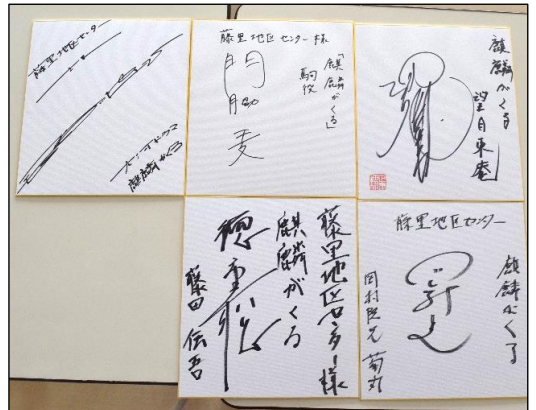 藤里地区センター
大河ドラマ
麒麟がくる
藤里地区センター様
「麒麟がくる」
駒役
門脇
麦
麒麟がくる
望月東庵
藤里地区センター様
麒麟がくる
徳重聡
藤田伝吾
藤里地区センター
麒麟がくる
岡村隆史 菊丸